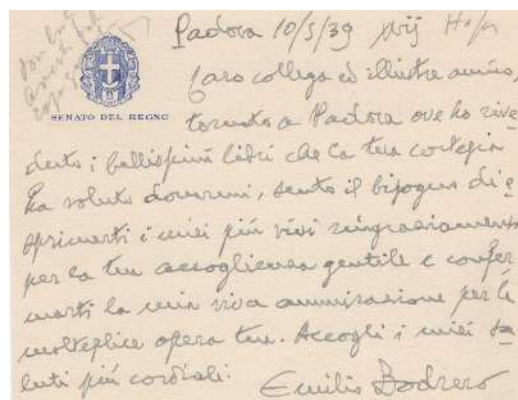 Padova 10/5/39 XVII
Caro collega ed illustre amico,
SENATO DEL REGNO
tornato a Padova ove ho rive
duto i bellissimi libri che la tua cortesia
ha voluto donarmi, sento il bisogno di e
sprimerti i miei più vivi ringraziamenti
per la tua accoglienza gentile e confer
marti la mia viva ammirazione per la
molteplice opera tua. Accogli i miei sa
luti più cordiali.
Emilio Bodrero